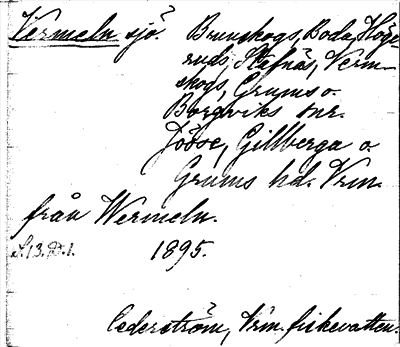 Vermeln sjö. Brunskogs, Boda, Höge-
ruds, Stafnäs, Verm-
skogs, Grums o.
Borgviks snr.
Jösse, Gillberga o.
Grums hd. Vrm.
från Wermeln.
S. 13. D. 1. 1895.
Cederström, Vrm. fiskevatten.